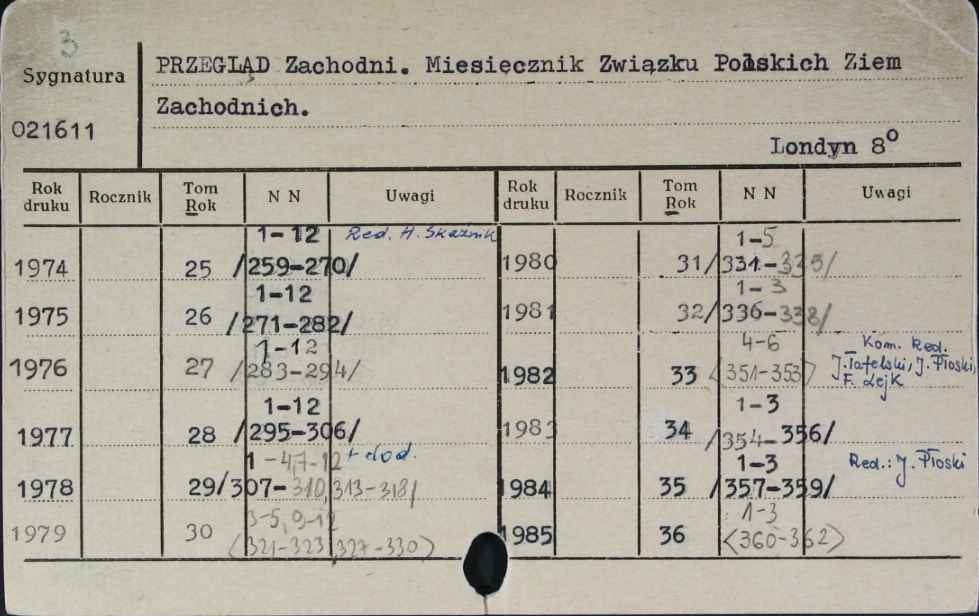 3
Sygnatura
021611
PRZEGLĄD Zachodni. Miesięcznik Związku Polskich Ziem
Zachodnich.
Londyn 8°
Rok druku Rocznik Tom Rok N N Uwagi Rok druku Rocznik Tom Rok N N Uwagi
1974 25 1-12 /259-270/ Red. H. Skaźnik
1975 26 1-12 /271-282/
1976 27 1-12 /283-294/
1977 28 1-12 /295-306/
1978 29 1-4,7-12 + dod. /307-310,313-318/
1979 30 3-5, 9-12 <321-323,327-330>
1980 31 1-5 /331-335/
1981 32 1-3 /336-338/
1982 33 4-6 <351-353> Kom. Red. J. Tafelski, J. Płoski, F. Lejk
1983 34 1-3 /354-356/
1984 35 1-3 /357-359/ Red.: J. Płoski
1985 36 1-3 <360-362>